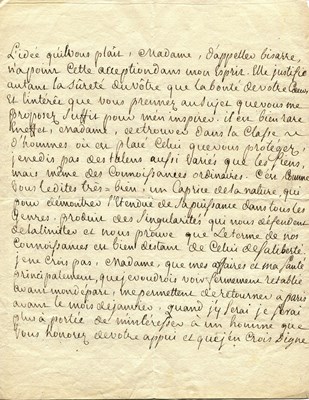 L'idée qu'il vous plait, Madame, d'appeller bisarre,
n'a point cette acception dans mon esprit. Elle justifie
autant la Sûreté du vôtre que la bonté de votre Cœur,
et l'interêt que vous prennez au Sujet que vous me
proposez Suffit pour m'en inspirer. il est bien rare
en effet, Madame, de trouver dans la Classe
d'hommes où est placé Celui que vous protegez,
je ne dis pas des talens aussi variés que les Siens,
mais même des Connoissances ordinaires. C'est, Comme
Vous le dites très-bien, un Caprice de la nature, qui
pour demontrer l'etendue de Sa puissance dans tous les
Genres, produit des Singularités qui nous
et nous prouve que Le terme de nos
Connoissances est bien distant de Celui de Sa liberté.
je ne crois pas, Madame, que mes affaires et ma Santé
principalement, que je voudrois voir fermement retablie
avant mon départ, me permettent de retourner a paris
avant le mois de janvier. quand j'y Serai je Serai
plus a portée de m'intéresser à un homme que
Vous honorez de votre appui et que j'en Crois Digne